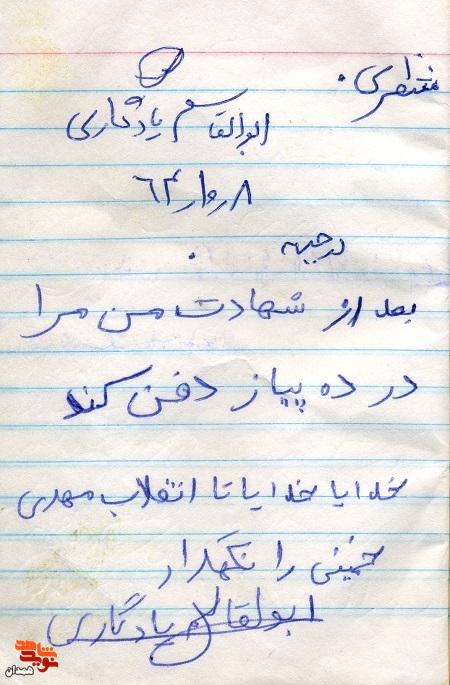 منتظری
ابوالقاسم یادگاری
در جبهه
بعد از شهادت من مرا
در ده پیاز دفن کند
خدایا خدایا تا انقلاب مهدی
خمینی را نگهدار
ابولقاسم یادگاری
نوید شاهد
همدان